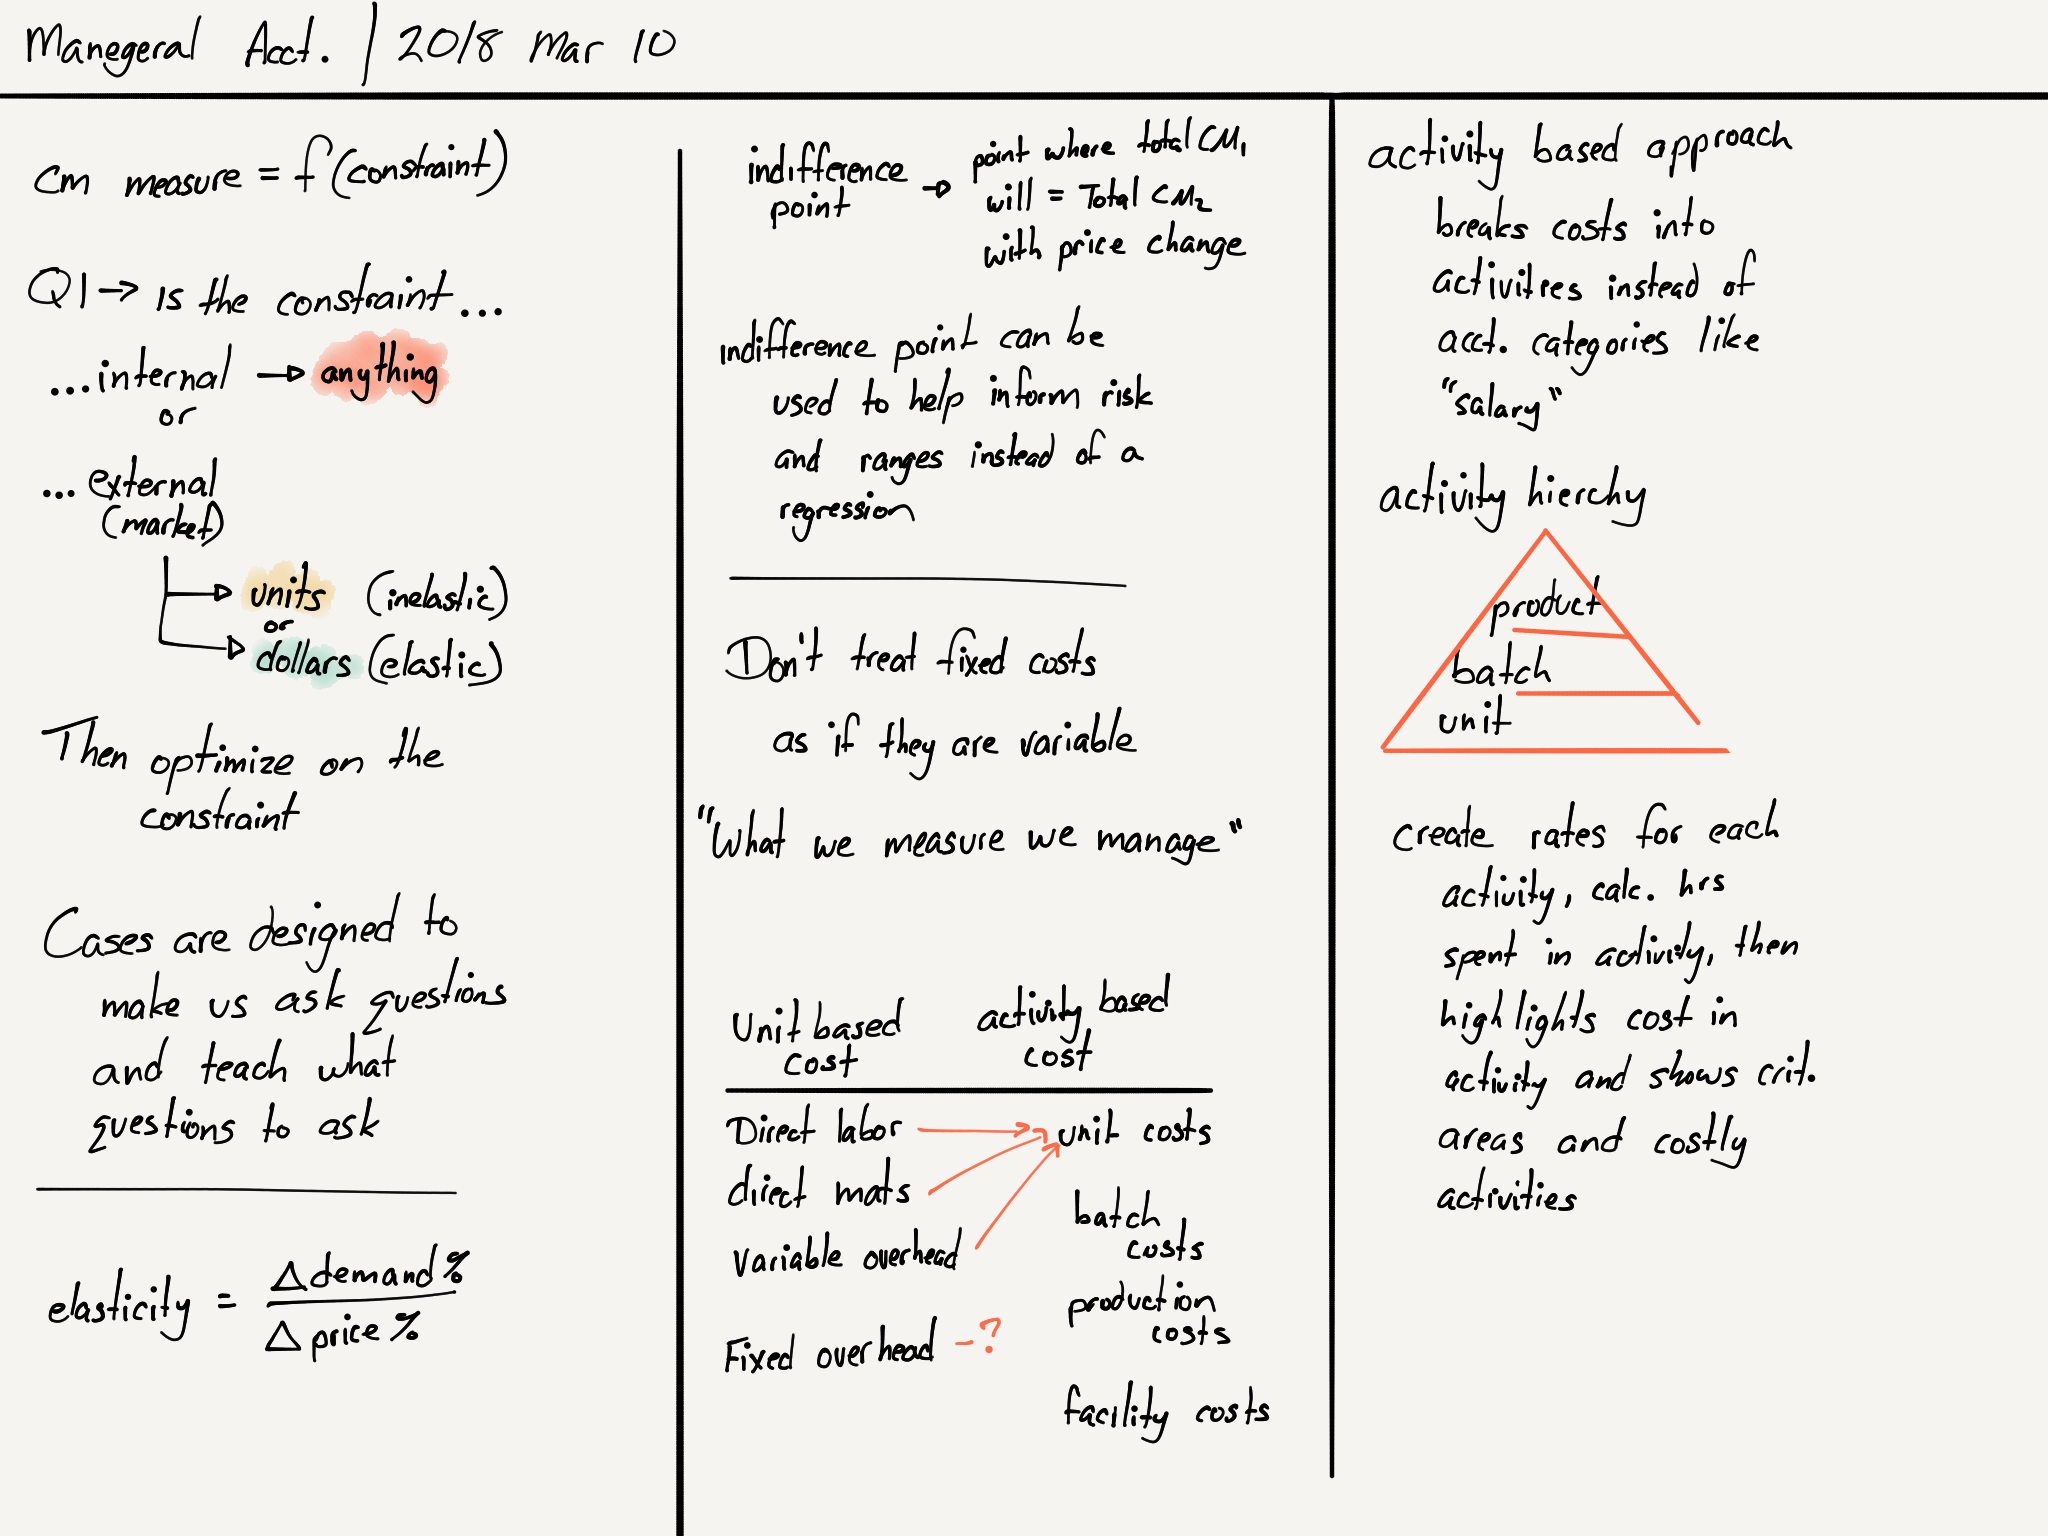 Manegeral Acct. | 2018 Mar 10
cm measure = f(constraint)
Q1 → is the constraint...
...internal → anything
or
... external
(market)
units (inelastic)
or
dollars (elastic)
Then optimize on the
constraint
Cases are designed to
make us ask questions
and teach what
questions to ask
elasticity = Δ demand %
Δ price %
indifference → point where total CM₁
point will = Total CM₂
with price change
indifference point can be
used to help inform risk
and ranges instead of a
regression
Don't treat fixed costs
as if they are variable
"What we measure we manage"
Unit based activity based
cost cost
Direct labor → unit costs
direct mats
batch
costs
Variable overhead
production
costs
Fixed overhead -?
facility costs
activity based approach
breaks costs into
activitres instead of
acct. categories like
"salary"
activity hierchy
product
batch
unit
create rates for each
activity, calc. hrs
spent in activity, then
highlights cost in
activity and shows crit.
areas and costly
activities